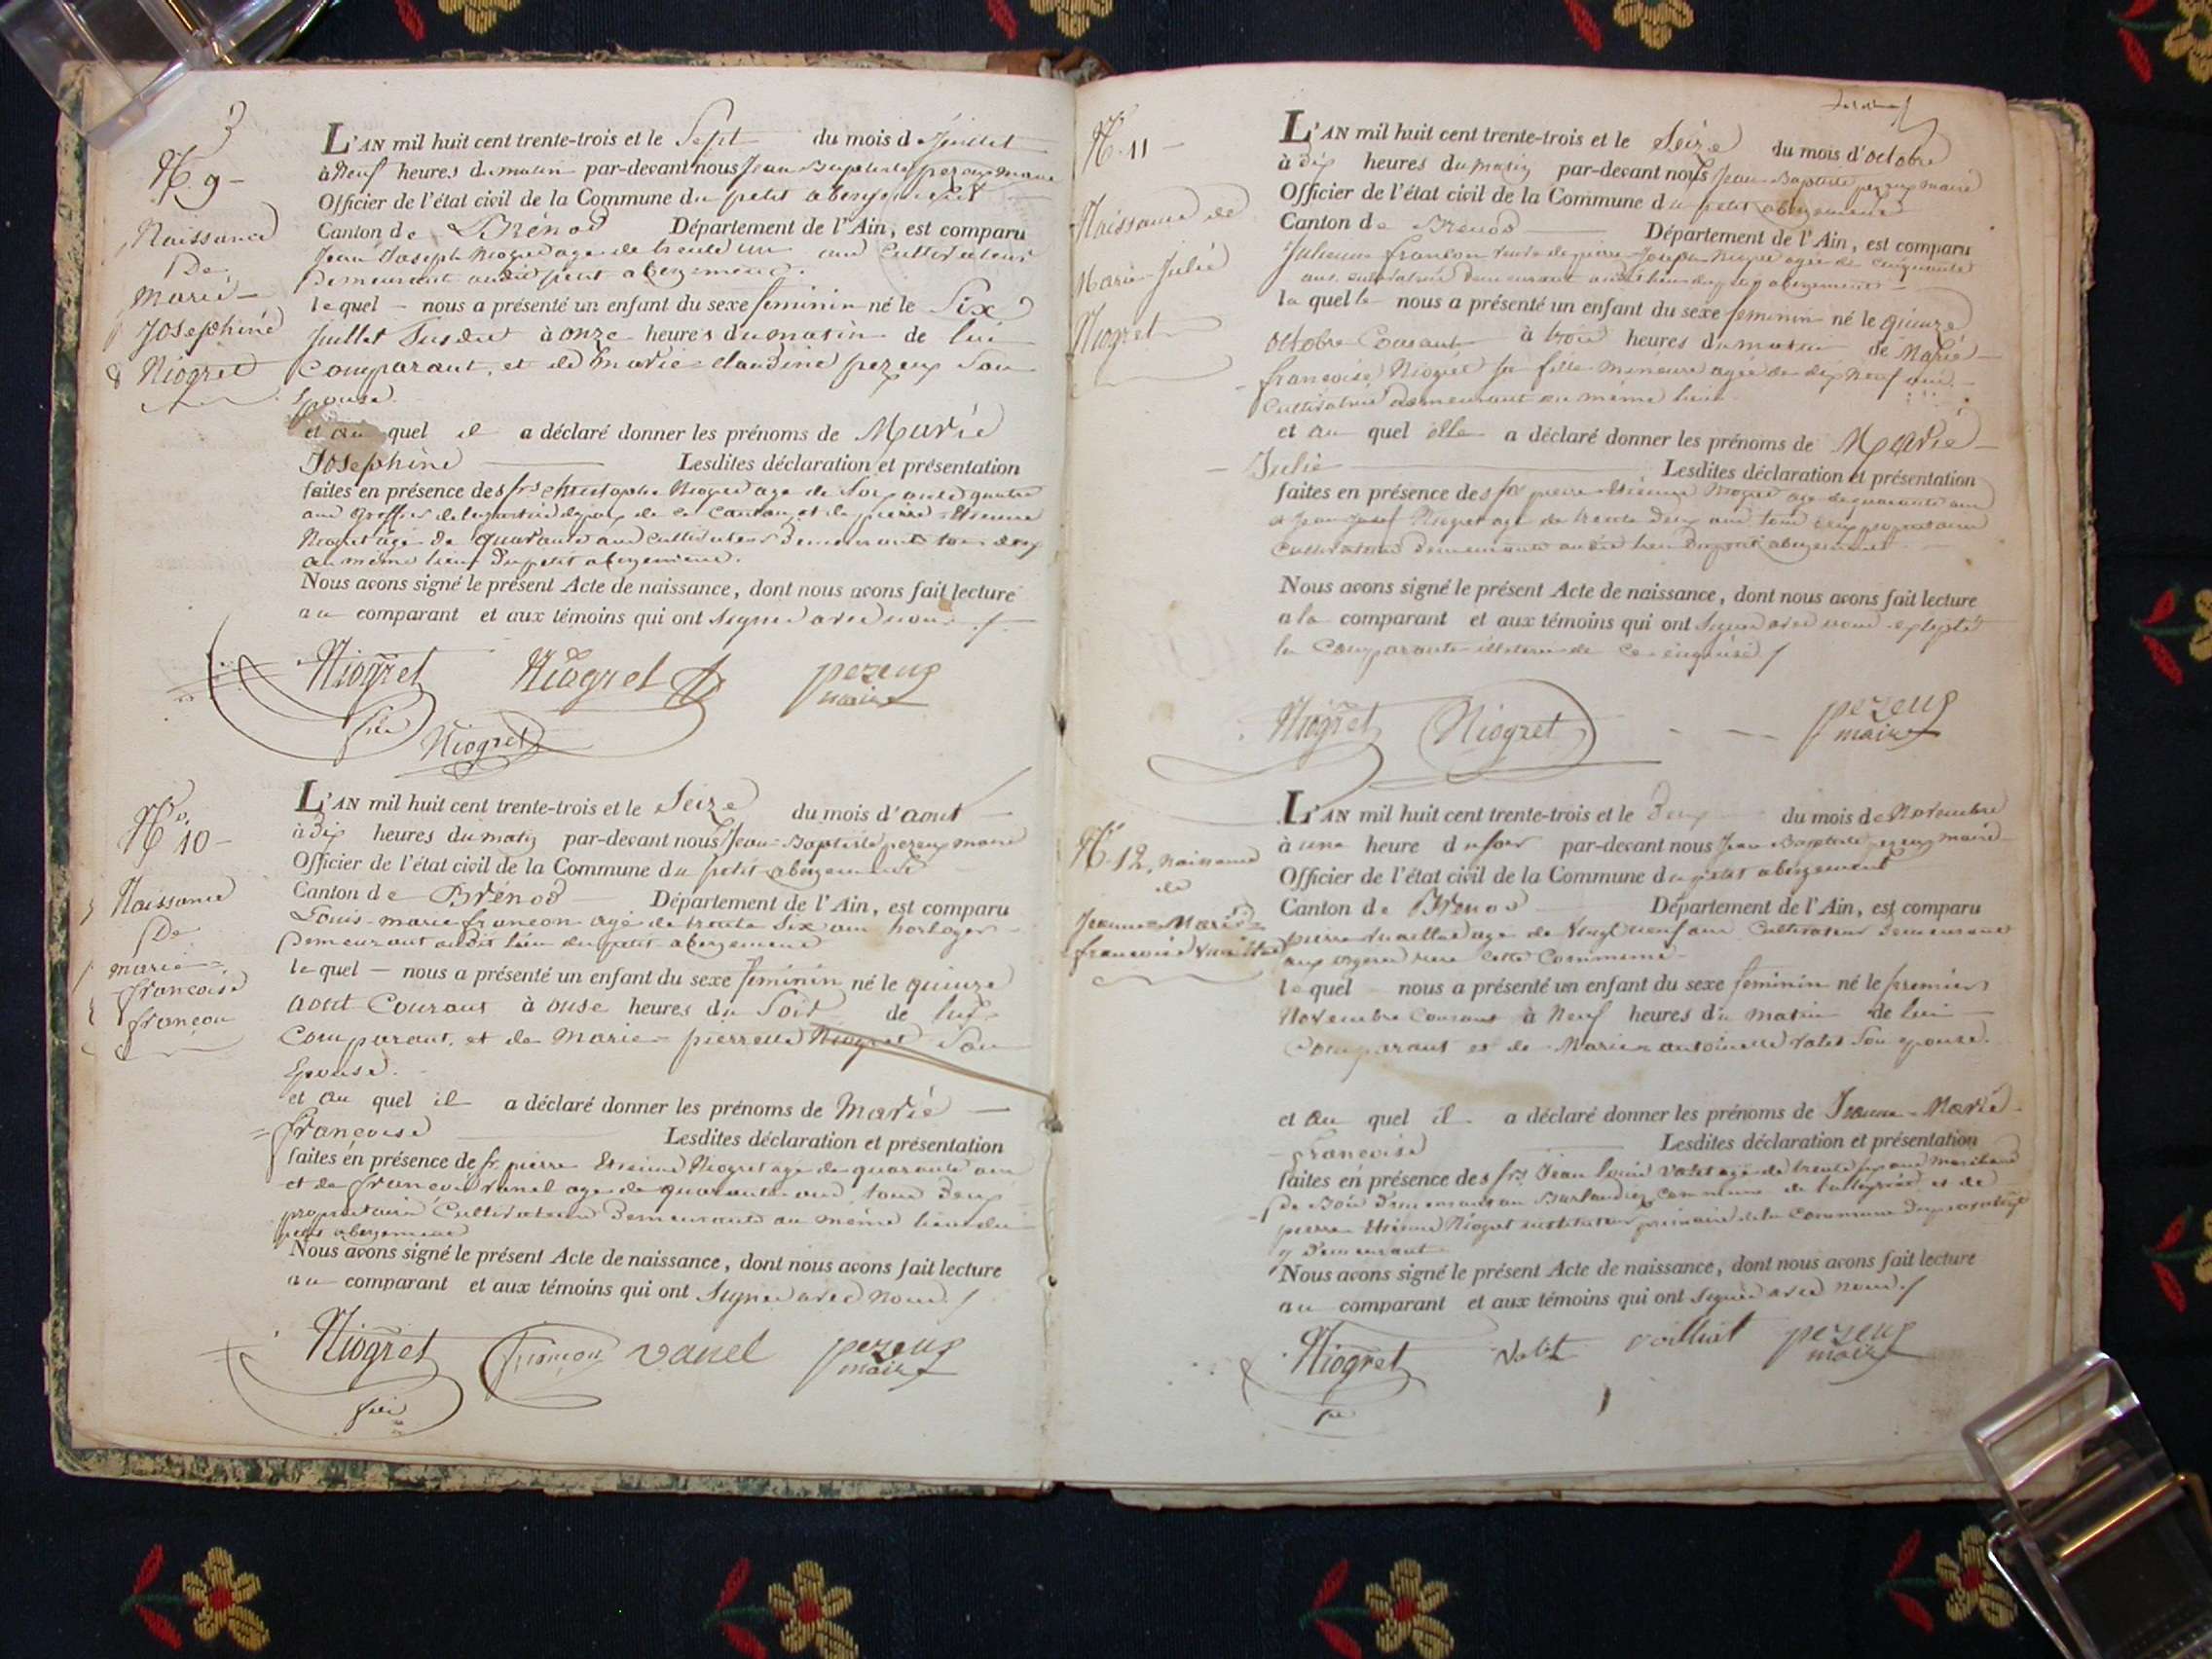 3
N° 9
Naissance
De
Marie
Josephine
Niogret
L'AN mil huit cent trente-trois et le Sept du mois de Juillet
à Neuf heures du matin par-devant nous Jean Baptiste pezeux maire
Officier de l'état civil de la Commune du petit abergement
Canton de Brénod Département de l'Ain, est comparu
Jean Joseph Niogret age de trente un ans Cultivateur
Demeurant audit petit abergement.
lequel nous a présenté un enfant du sexe feminin né le Six
Juillet Susdit à onze heures du matin de lui
Comparant, et de Marie-Claudine pezeux Son
Epouse.
et au quel il a déclaré donner les prénoms de Marie
Josephine Lesdites déclaration et présentation
faites en présence des frs Christophe Niogret age de Soixante quatre
ans Greffier de la justice de paix de ce Canton, et de pierre-Etienne
Niogret agé de quarante ans Cultivateur Demeurants tous deux
au même lieu Du petit abergement.
Nous avons signé le présent Acte de naissance, dont nous avons fait lecture
au comparant et aux témoins qui ont signé avec nous
Niogret Niogret pezeux
maire
Niogret
N° 10
Naissance
De
marie
françoise
françon
L'AN mil huit cent trente-trois et le Seize du mois d'aout
à dix heures du matin par-devant nous Jean-Baptiste pezeux maire
Officier de l'état civil de la Commune du petit abergement
Canton de Brénod Département de l'Ain, est comparu
Louis-marie françon agé de trente Six ans horloger
Demeurant audit lieu du petit abergement
lequel nous a présenté un enfant du sexe feminin né le quinze
aout Courant à onse heures du Soir de lui
Comparant, et de Marie-pierrette Niogret Son
Epouse.
et au quel il a déclaré donner les prénoms de Marie
françoise Lesdites déclaration et présentation
faites en présence de fr. pierre Etienne Niogret agé de quarante ans
et de françois vanel age de quarante ans tous Deux
proprietaires Cultivateurs Demeurants au même lieu du
petit abergement
Nous avons signé le présent Acte de naissance, dont nous avons fait lecture
au comparant et aux témoins qui ont Signé avec nous
Niogret françon vanel pezeux
maire
N° 11
Naissance de
Marie-Julie
Niogret
L'AN mil huit cent trente-trois et le Seize du mois d'octobre
à dix heures du matin par-devant nous Jean-Baptiste pezeux maire
Officier de l'état civil de la Commune du petit abergement
Canton de Brenod Département de l'Ain, est comparu
Julienne françon veuve de pierre-Joseph Niogret agée de Cinquante
ans Cultivatrice Demeurant audit lieu du petit abergement
laquelle nous a présenté un enfant du sexe feminin né le quinze
octobre Courant à trois heures du matin de Marie
françoise Niogret Sa fille Mineure agée de dix Neuf ans
Cultivatrice demeurant au même lieu
et au quel elle a déclaré donner les prénoms de Marie
Julie Lesdites déclaration et présentation
faites en présence des frs pierre-Etienne Niogret age de quarante ans
et Jean-Josef Niogret agé de trente Deux ans tous deux proprietaires
Cultivateurs Demeurants audit lieu Du petit abergement
Nous avons signé le présent Acte de naissance, dont nous avons fait lecture
a la comparant et aux témoins qui ont Signé avec nous
la Comparante illiterée de ce enquise
Niogret Niogret pezeux
maire
N° 12, naissance
de
Jeanne-Marie
françoise
L'AN mil huit cent trente-trois et le Deux du mois de Novembre
à une heure du soir par-devant nous Jean Baptiste pezeux maire
Officier de l'état civil de la Commune du petit abergement
Canton de Brenod Département de l'Ain, est comparu
pierre agé de Vingt neuf ans Cultivateur Demeurant
cette Commune
lequel nous a présenté un enfant du sexe feminin né le premier
Novembre Courant à Neuf heures du matin de lui
Comparant et de Marie antoinette Valet Son epouse.
et au quel il a déclaré donner les prénoms de Jeanne-Marie
françoise Lesdites déclaration et présentation
faites en présence des frs Jean Louis Valet agé de trente six ans Marchand
De Bois Demeurant au Commune de et de
pierre Etienne Niogret instituteur primaire de la Commune
y Demeurant
Nous avons signé le présent Acte de naissance, dont nous avons fait lecture
au comparant et aux témoins qui ont signé avec nous
Niogret Valet pezeux
maire